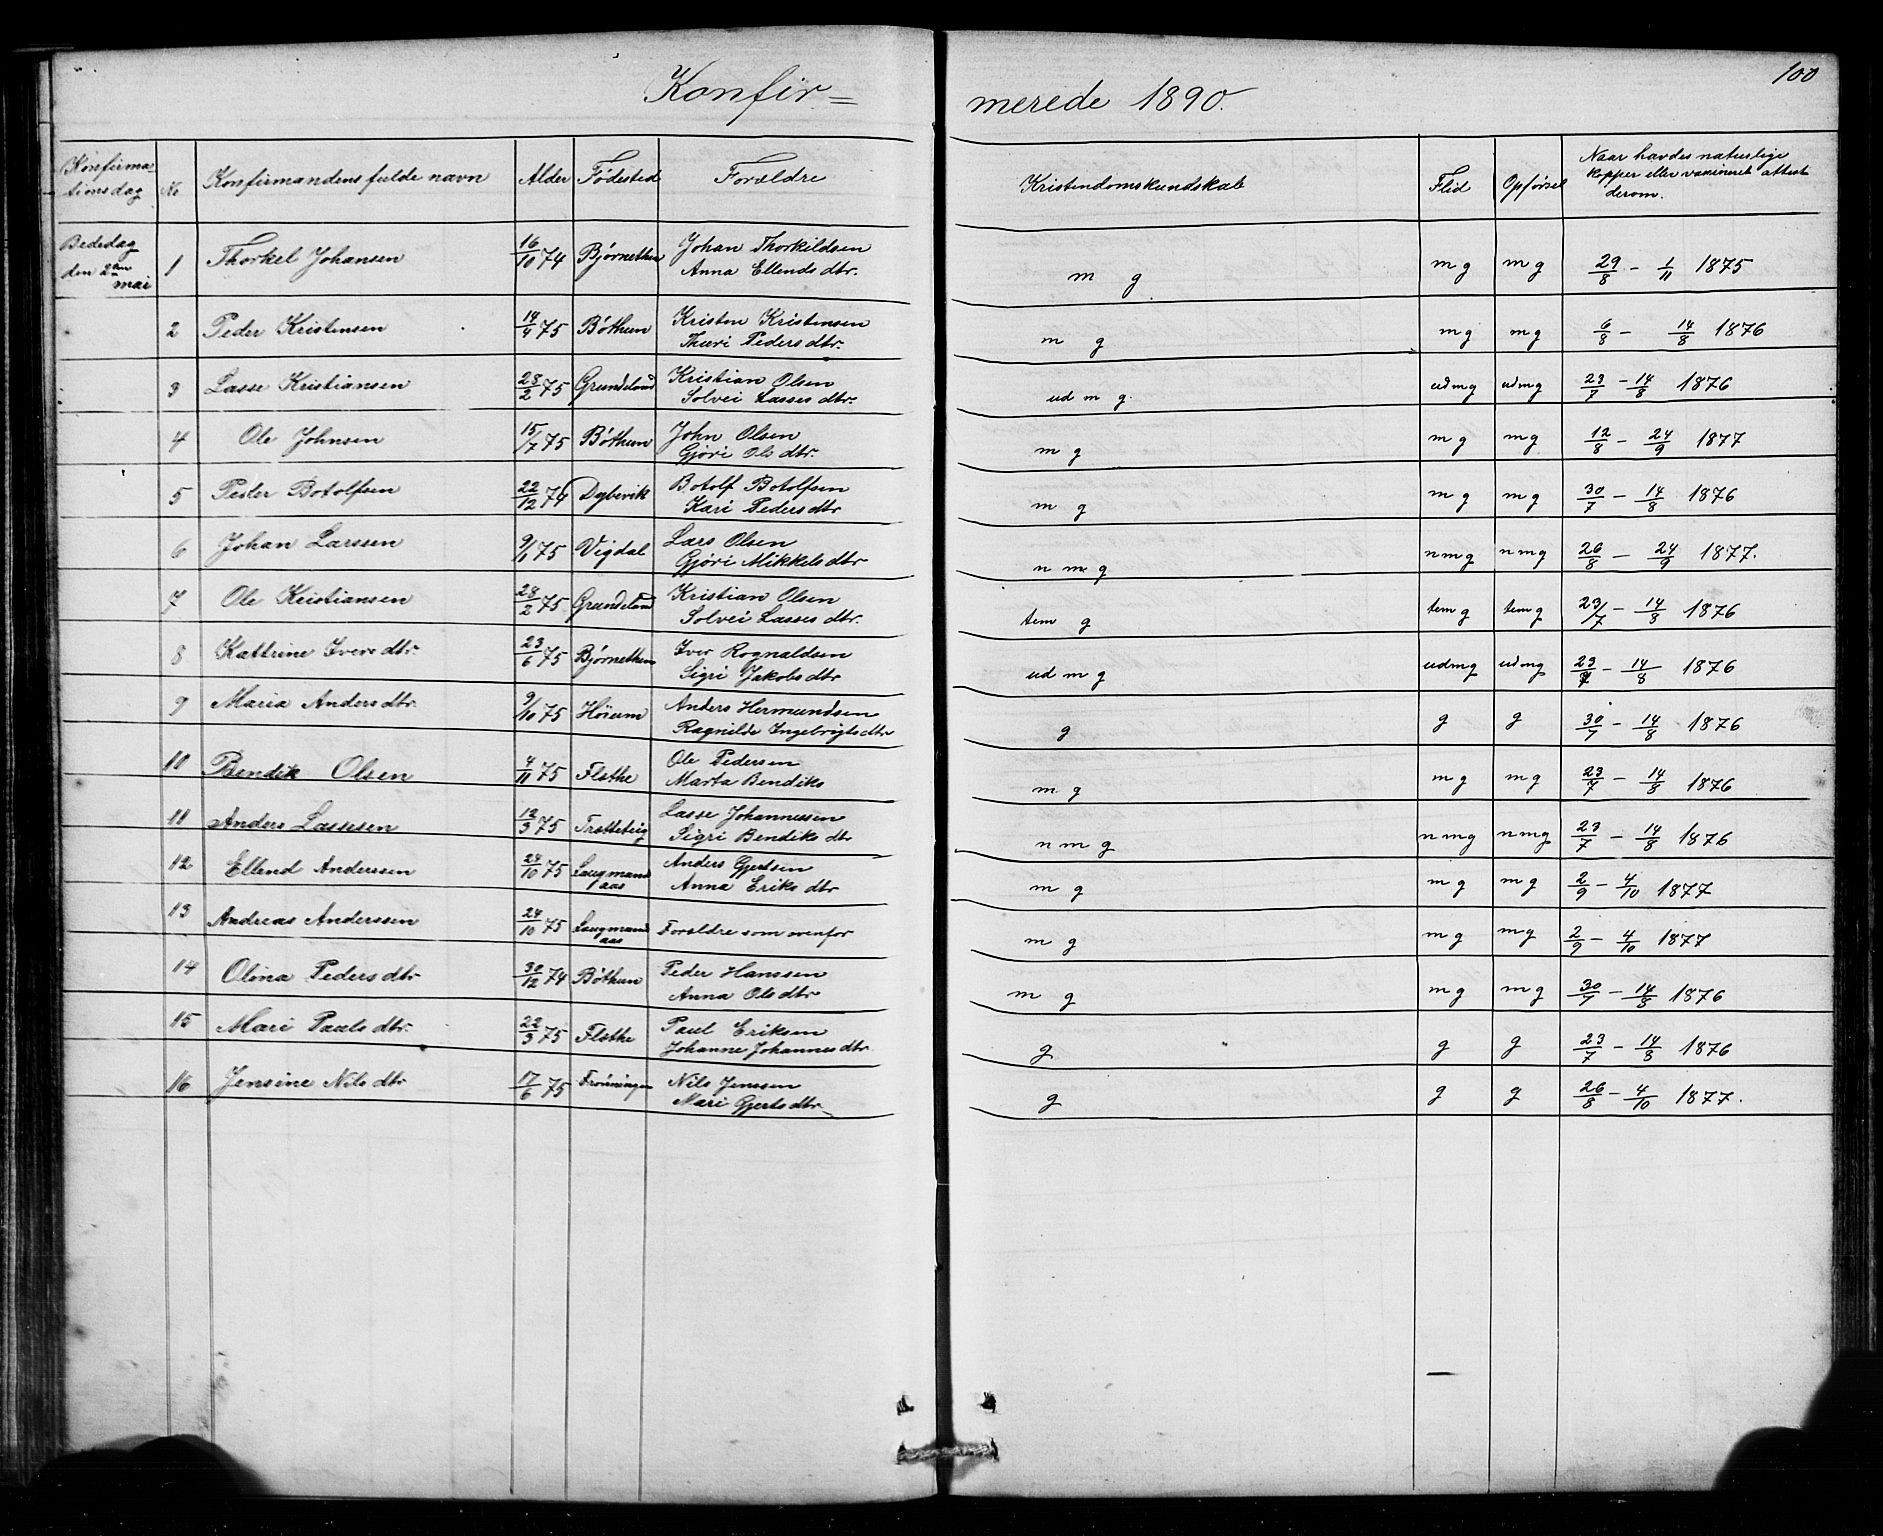 100
Konfir= merede 1890.
Konfirma- tionsdag No Konfirmandens fulde navn Alder Fødested Forældre Kristendomskundskab Flid Opførsel Naar havdes naturlige kopper eller vaccineret attest derom.
Bededag den 2den mai 1 Thorkel Johansen 16/10 74 Bjørnethun Johan Thorkildsen Anna Ellends dtr. m g m g m g 29/8 – 1/11 1875
2 Peder Kristensen 14/4 75 Bøthun Kristen Kristensen Thuri Peders dtr. m g m g m g 6/8 – 14/8 1876
3 Lasse Kristiansen 28/2 75 Grundeland Kristian Olsen Solvei Lasses dtr. ud m g. ud m g ud m g 23/7 – 14/8 1876
4 Ole Johnsen 15/7 75 Bøthun John Olsen Gjøri Ols dtr. m g m g m g 12/8 – 24/9 1877
5 Peder Botolfsen 22/12 74 Dybevik Botolf Botolfsen Kari Peders dtr m g m g m g 30/7 – 14/8 1876
6 Johan Larssen 9/1 75 Vigdal Lars Olsen Gjøri Mikkels dtr n m g n m g n m g 26/8 – 24/9 1877.
7 Ole Kristiansen 28/2 75 Grundeland Kristian Olsen Solvei Lasses dtr. tem g tem g tem g 23/7 – 14/8 1876
8 Kattrine Ivers dtr 23/6 75 Bjørnethun Iver Rognaldsen Sigri Jakobs dtr ud m g ud m g ud m g 23/7 – 14/8 1876
9 Maria Anders dtr. 9/10 75 Høium Anders Hermundsen Ragnilde Ingebrigts dtr g g g 30/7 – 14/8 1876
10 Bendik Olsen 4/11 75 Fløthe Ole Pedersen Marta Bendiks m g m g m g 23/7 – 14/8 1876
11 Anders Lassesen 12/3 75 Trætteteig Lasse Johannessen Sigri Bendiks dtr n m g n m g n m g 23/7 – 14/8 1876
12 Ellend Anderssen 24/10 75 Laugmands aas Anders Gjertsen Anna Eriks dtr m g m g m g 2/9 – 4/10 1877
13 Andreas Anderssen 24/10 75 Laugmands aas Forældre som ovenfor m g m g m g 2/9 – 4/10 1877
14 Olina Peders dtr 30/12 74 Bøthun Peder Hanssen Anna Ols dtr m g m g m g 30/7 – 14/8 1876
15 Mari Pauls dtr. 22/3 75 Fløthe Paul Eriksen Johanne Johannes dtr. g g g 23/7 – 14/8 1876
16 Jensine Nils dtr 17/6 75 Frønningen Nils Jenssen Mari Gjerts dtr g g g 26/8 – 4/10 1877.